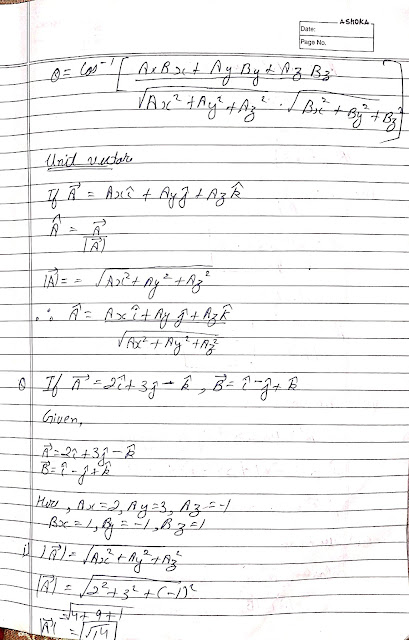 ASHOKA
Date:
Page No.
θ = Cos⁻¹ [ AxBx + AyBy + AzBz
√Ax² + Ay² + Az² · √Bx² + By² + Bz² ]
Unit vector
If A⃗ = Axî + Ayĵ + Azk̂
Â = A⃗
|A⃗|
|A⃗| = = √Ax² + Ay² + Az²
∴ Â = Axî + Ayĵ + Azk̂
√Ax² + Ay² + Az²
Q If A⃗ = 2î + 3ĵ - k̂, B⃗ = î - ĵ + k̂
Given,
A⃗ = 2î + 3ĵ - k̂
B⃗ = î - ĵ + k̂
Here, Ax = 2, Ay = 3, Az = -1
Bx = 1, By = -1, Bz = 1
i) |A⃗| = √Ax² + Ay² + Az²
|A⃗| = √2² + 3² + (-1)²
= √4 + 9 + 1
|A⃗| = √14